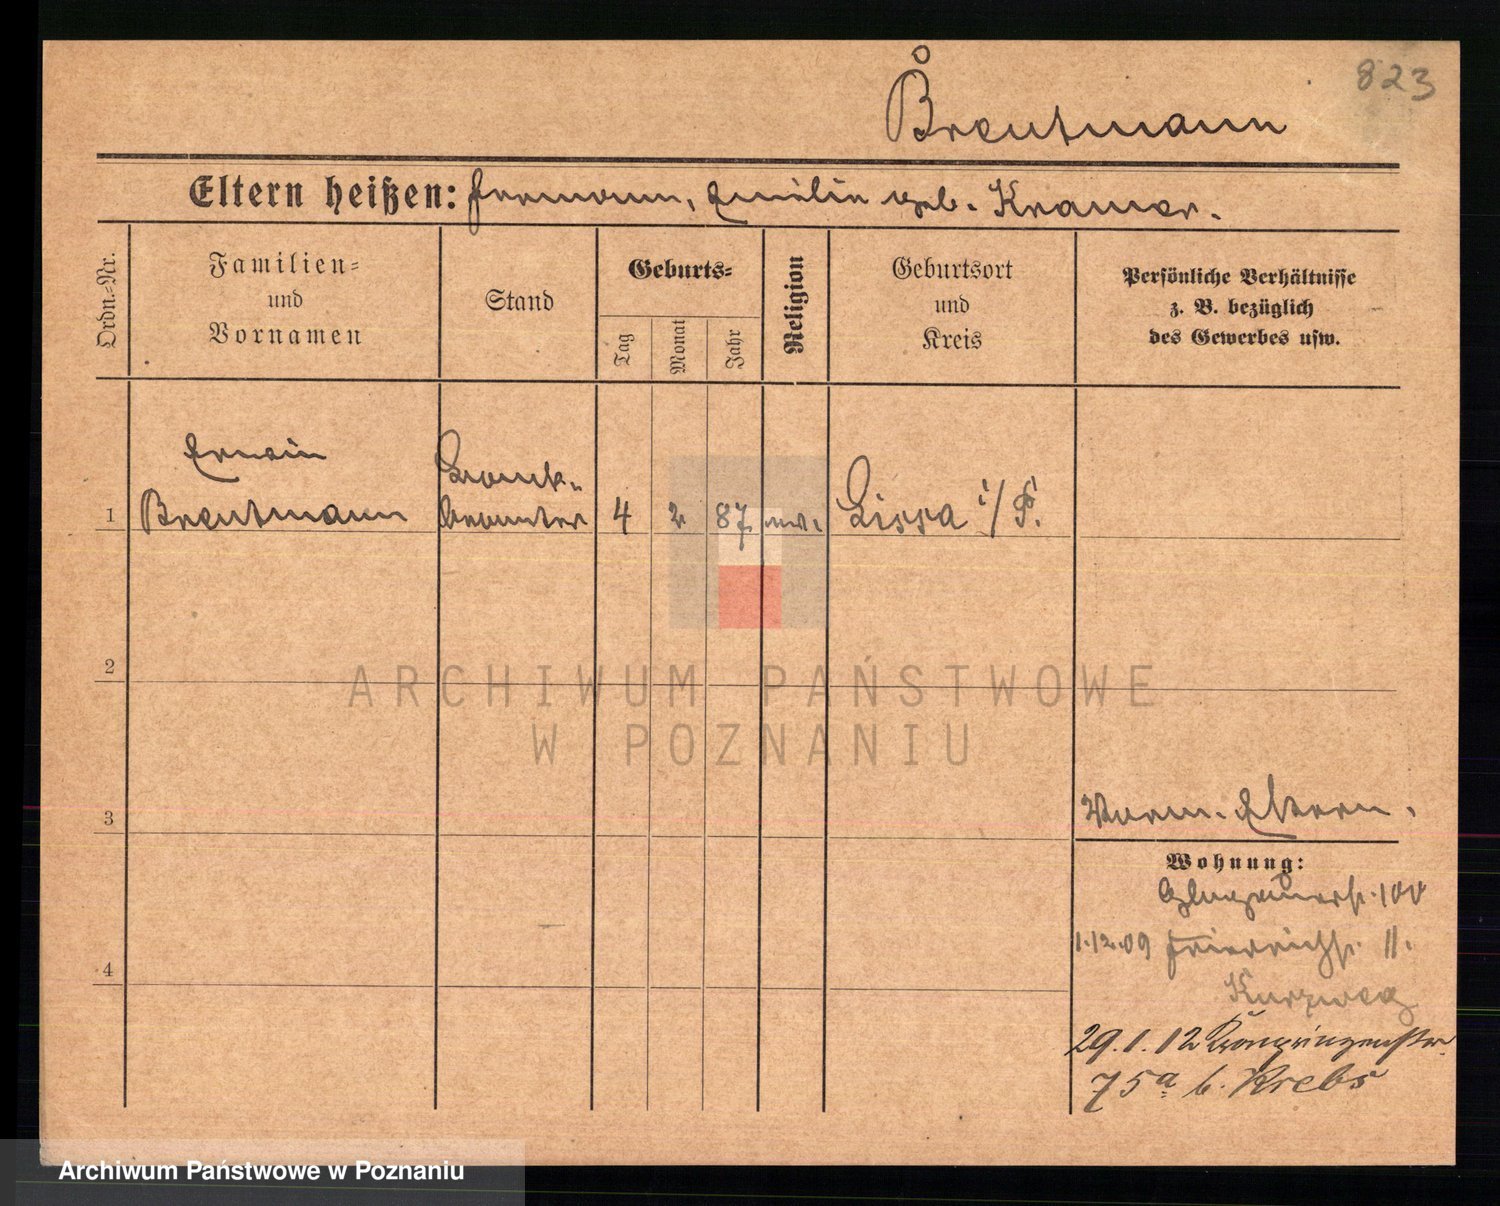 823
Brentmann
Eltern heißen: Hermann, Emilie geb. Kramer.
Ordn.-Nr.
Familien-
und
Vornamen
Stand
Geburts-
Tag
Monat
Jahr
Religion
Geburtsort
und
Kreis
Persönliche Verhältnisse
z. B. bezüglich
des Gewerbes usw.
Erwin
Brentmann
Bank-
beamter
1
4
2
87
ev.
Lissa i/P.
2
ARCHIWUM PAŃSTWOWE
W POZNANIU
3
Eltern.
Wohnung:
Glogauerstr. 100
1.12.09 Friedrichstr. 11.
Kurzweg
29.1.12 Kronprinzenstr.
75a b. Krebs
4
Archiwum Państwowe w Poznaniu